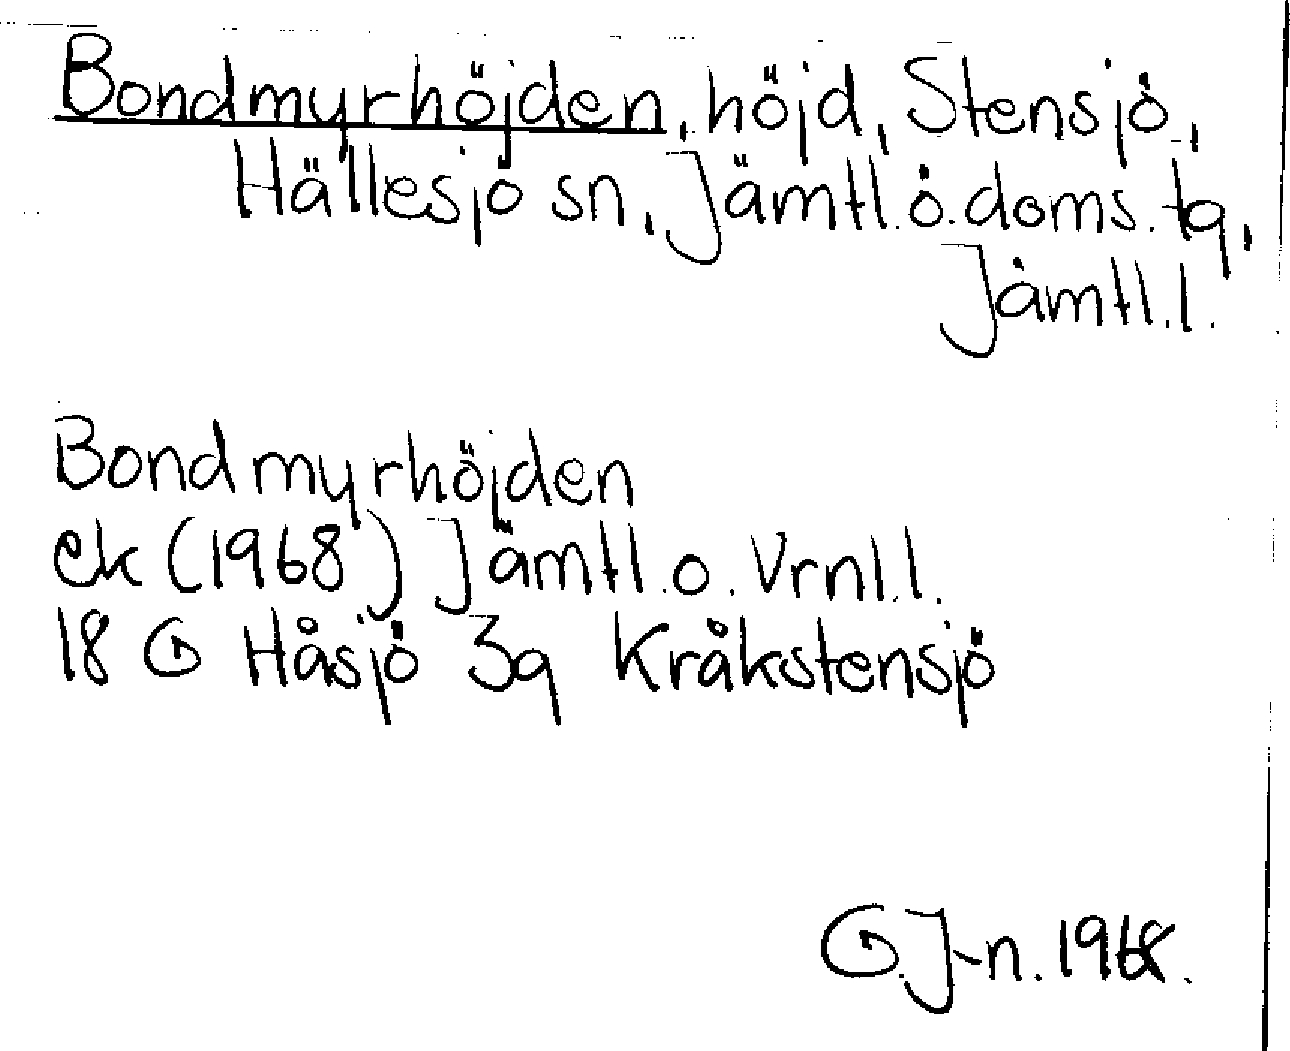 Bondmyrhöjden, höjd, Stensjö,
Hällesjö sn, Jämtl. ö. doms. tg,
Jämtl. l.
Bondmyrhöjden
ek (1968) Jämtl. o. Vrnl. l.
18 G Håsjö 3g Kråkstensjö
G.J-n. 1968.